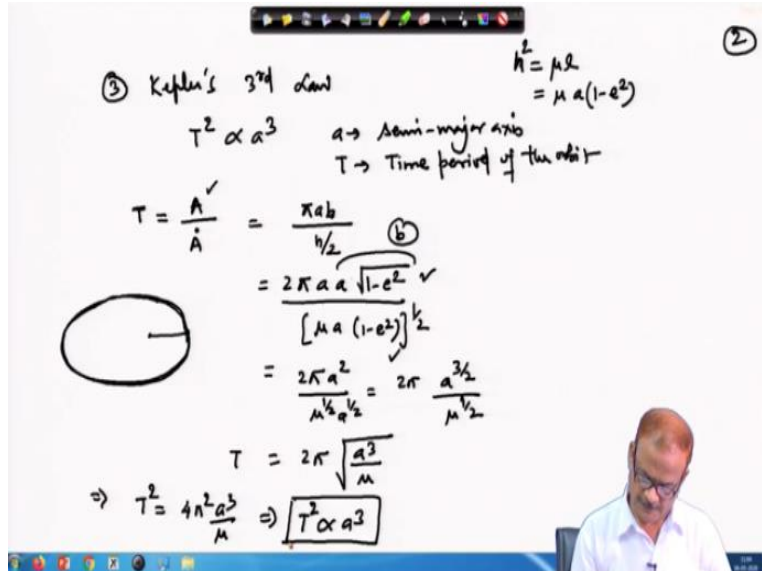 ②
h² = μl
= μ a(1-e²)
③ Kepler's 3rd Law
T² ∝ a³ a → semi-major axis
T → Time period of the orbit
T = A/Ȧ ✓ = πab/(h/2)
ⓑ
= 2πa a√(1-e²) ✓ / [μa (1-e²)]^(1/2)
= 2πa²/(μ^(1/2) a^(1/2)) ✓ = 2π a^(3/2)/μ^(1/2)
T = 2π √(a³/μ)
⇒ T² = 4π²a³/μ ⇒ T² ∝ a³